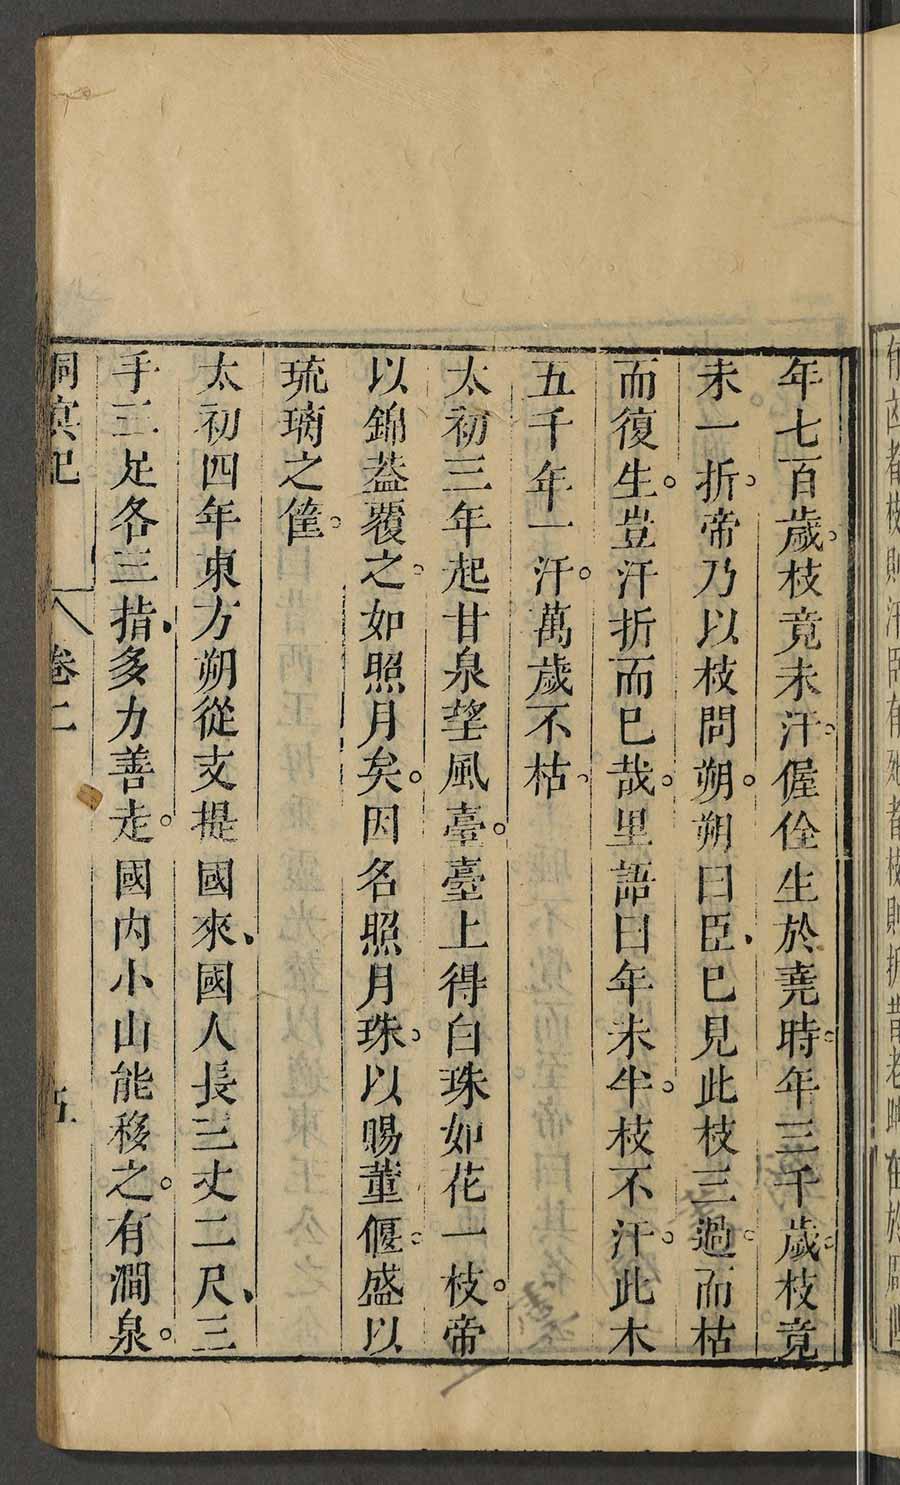 年七百歲。枝竟未汗。偓佺生於堯時。年三千歲。枝竟
未一折。帝乃以枝問朔。朔曰臣、已見此枝三過。而枯
而復生。豈汗折而已哉。里語曰年未半。枝不汗。此木
五千年一汗。萬歲不枯。
太初三年起甘泉望風臺。臺上得白珠如花一枝。帝
以錦葢覆之。如照月矣。因名照月珠。以賜董偃。盛以
琉璃之筐。
太初四年東方朔從支提國來、國人長三丈二尺、三
手三足各三指、多力善走。國內小山能移之。有澗泉。
洞冥記 卷二 五